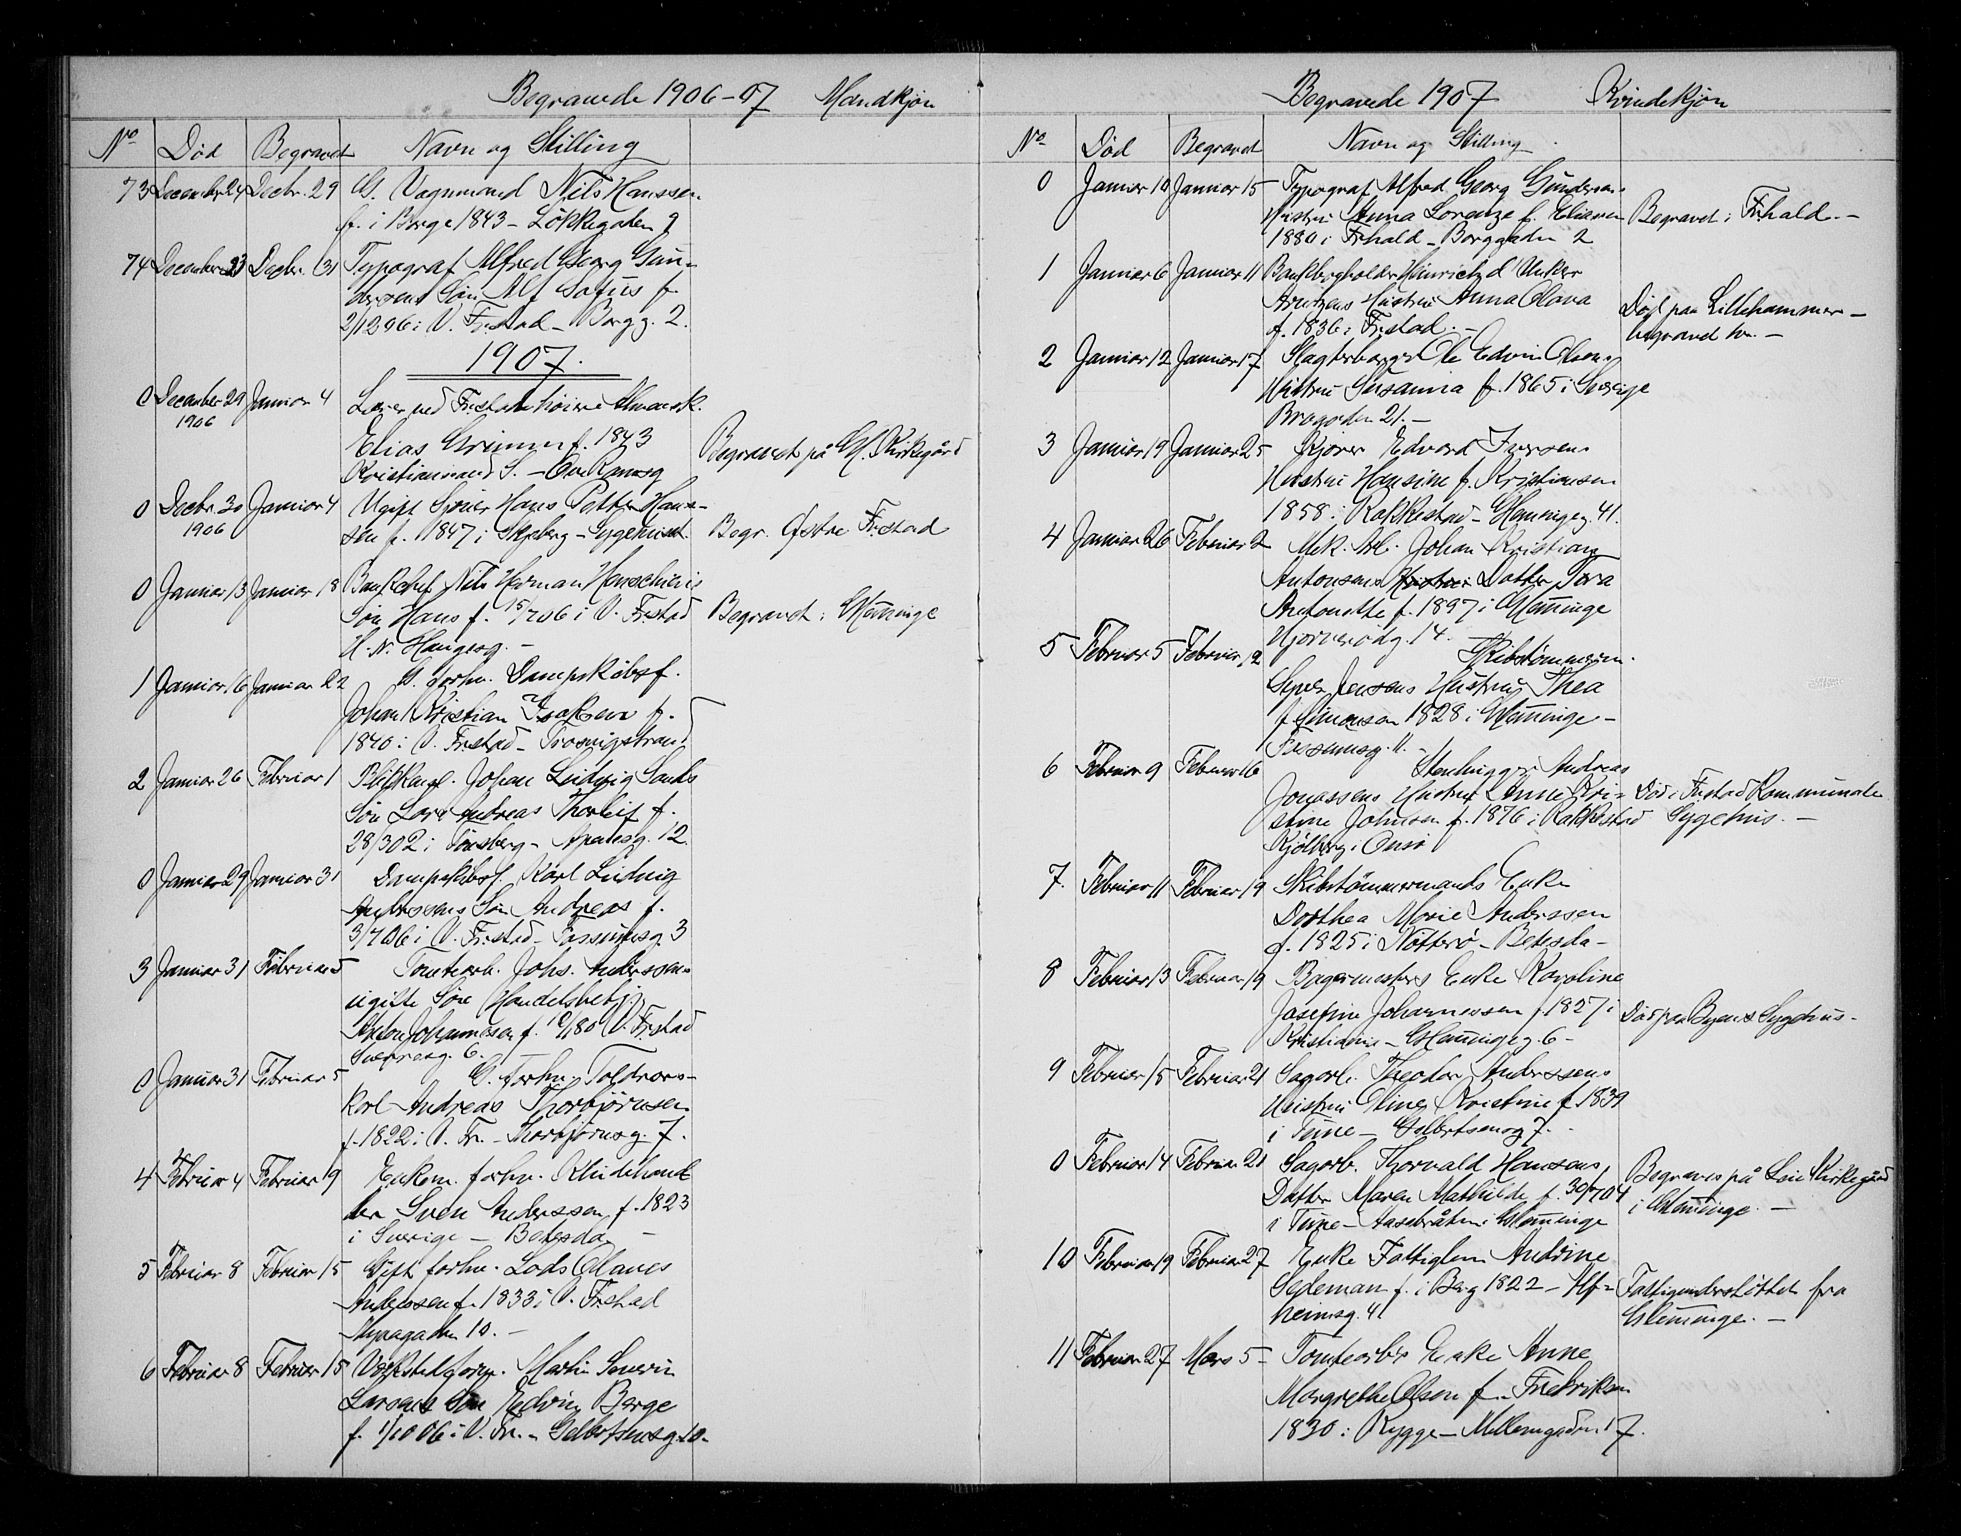 Begravede 1906-07 Mandkjøn
No Død Begravet Navn og Stilling
73 December 24 Decbr. 29 G. Vognmand Nils Hanssen
f. i Borge 1843 - Løkkegaden 9
74 December 23 Decbr. 31 Typograf Alfred Georg Gun-
dersens Søn Alf Sofus f.
2/12 06 i V. Fr.stad - Borgg. 2.
1907.
0 December 29 Januar 4
1906
Lærer ved Fr.stads høiere Almensk.
Elias f. 1843
Kristianssund S. -
Begravet på Gl. Kirkegård
0 Decbr. 30 Januar 4 Ugift Hans Petter Hans-
1906
sen f. 1847 i Skjeberg - Sygehuset.
Begr. Østre Fr.stad
0 Januar 13 Januar 18 Bankchef Nils Herman
Søn Hans f. 15/7 06 i V. Fr.stad
H. N. Haugesg. -
Begravet i Glemminge
1 Januar 16 Januar 22 G. forhv. Dampskibsf.
Johan Kristian Isaksen f.
1840 i V. Fr.stad - Trosvigstrand
2 Januar 26 Februar 1 Johan Ludvig
Søn Andreas Thorleif f.
28/3 02 i Tønsberg - 12.
0 Januar 29 Januar 31 Dampskibsf. Karl Ludvig
Anderssens Søn Andreas f.
3/7 06 i V. Fr.stad - 3
3 Januar 31 Februar 5 Tomtearb. Johs. Anderssens
ugifte Søn Handelsbetj.
Anton Johannessen f. 80 V. Fr.stad
Sverresg. 6.
0 Januar 31 Februar 5 G. forhv. Toldrors-
karl Andreas Thorbjørnsen
f. 1822 i V. Fr. - Thorbjørnsg. 7.
4 Februar 4 Februar 19 Enkem. forhv. Kludehand-
ler Sven Anderssen f. 1823
i Sverige - Betesda -
5 Februar 8 Februar 15 Gift forhv. Lods Olaves
Anderssen f. 1833 i V. Fr.stad
10. -
6 Februar 8 Februar 15 Værkstedform. Martin Severin
Larsens Søn Edvin Berge
f. 1/10 06 i V. Fr. - Gelbertsensg. 10 -
Begravede 1907 Kvindekjøn
No Død Begravet Navn og Stilling
0 Januar 10 Januar 15 - Typograf Alfred Georg Gundersens
Hustru Anna Lorenze f.
1880 i Fr.hald - Borggaden 2
Begravet i Fr.hald. -
1 Januar 6 Januar 11 Bankbogholder
Arntzens Hustru Anna Olava
f. 1836 i Fr.stad. -
Død paa Lillehammer -
begravet her. -
2 Januar 12 Januar 17 Slagterborger Ole Edvin Olsens
Hustru Susanna f. 1865 i Sverige
Brogaden 21. -
3 Januar 19 Januar 25 Kjører Edvard Iversens
Hustru Hansine f. Kristiansen
1858 i Rakkestad - Glemmingeg. 41.
4 Januar 26 Februar 2 Mek. Arb. Johan Kristian
Antonsens Hustru Datter Tora
Antonette f. 1897 i Glemminge
14. -
5 Februar 5 Februar 12 Skibstømmerm.
Jensens Hustru Thea
f. Simonsen 1828 i Glemminge -
11. -
6 Februar 9 Februar 16 Stenhugger Andreas
Jonassens Hustru Anne Kri-
stine Johnsen f. 1876 i Rakkestad
Kjølberg i Onsø
Død i Fr.stad Kommunale
Sygehus. -
7. Februar 11 Februar 19 Skibstømmermands Enke
Dorthea Marie Anderssen
f. 1825 i Nøtterø - Betesda -
8 Februar 13 Februar 19 Bagermesters Enke Karoline
Josefine Johannessen f. 1827 i
Kristiania - Glemmingeg. 6 -
Død paa Byens Sygehus. -
9 Februar 15 Februar 21 Sagarb. Theodor Anderssens
Hustru Kristine f. 1839
i Tune - Gelbertsensg 7. -
0 Februar 14 Februar 21 Sagarb. Thorvald Hansens
Datter Maren Mathilde f. 30/7 04
i Tune - Glemminge
Begraves på Leie Kirkegård
i Glemminge. -
10 Februar 19 Februar 27 Enke Fattiglem Andrine
Sedeman f. i Berg 1822 - Alf-
heimsg. 41
Fattigunderstøttet fra
Glemminge. -
11 Februar 27 Mars 5 - Tomtearb's Enke Anne
Margrethe Olsen f. Fredriksen
1830 i Rygge - Mellemgaden 17.